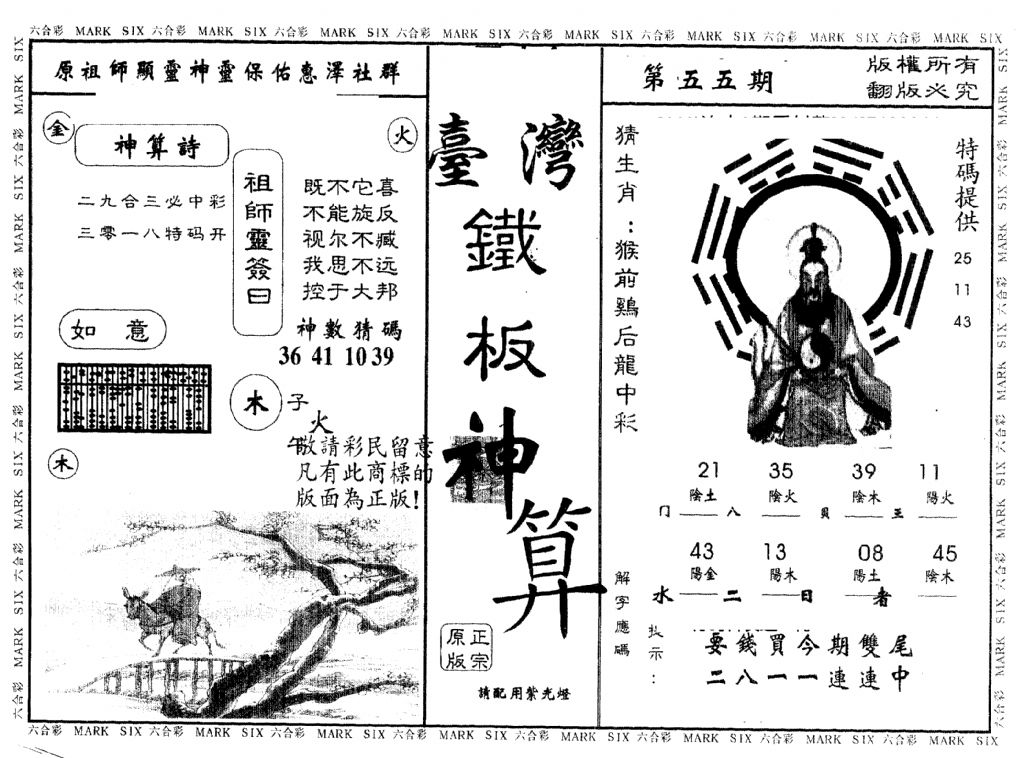 六合彩 MARK SIX 六合彩 MARK SIX 六合彩 MARK SIX 六合彩 MARK SIX 六合彩 MARK SIX 六合彩 MARK SIX 六合彩 MARK SIX 六合彩 MARK SIX
原祖師顯靈神靈保佑惠澤社群
金
火
神算詩
二九合三必中彩
三零一八特码开
祖師靈簽曰
既不它喜
不能旋反
视尔不臧
我思不远
控于大邦
神數猜碼
36 41 10 39
如 意
木
子
火
午
敬請彩民留意
凡有此商標的
版面為正版!
木
臺灣
鐵
板
神
算
正宗
原版
請配用紫光燈
第五五期
版權所有
翻版必究
猜生肖:猴前鷄后龍中彩
特碼提供
25
11
43
21 35 39 11
陰土 陰火 陰木 陽火
门 八 贝 王
43 13 08 45
陽金 陽木 陽土 陰木
水 二 日 者
解字應碼
提示:
要錢買今期雙尾
二八一一連連中
六合彩 MARK SIX 六合彩 MARK SIX 六合彩 MARK SIX 六合彩 MARK SIX 六合彩 MARK SIX 六合彩 MARK SIX 六合彩 MARK SIX 六合彩 MARK SIX